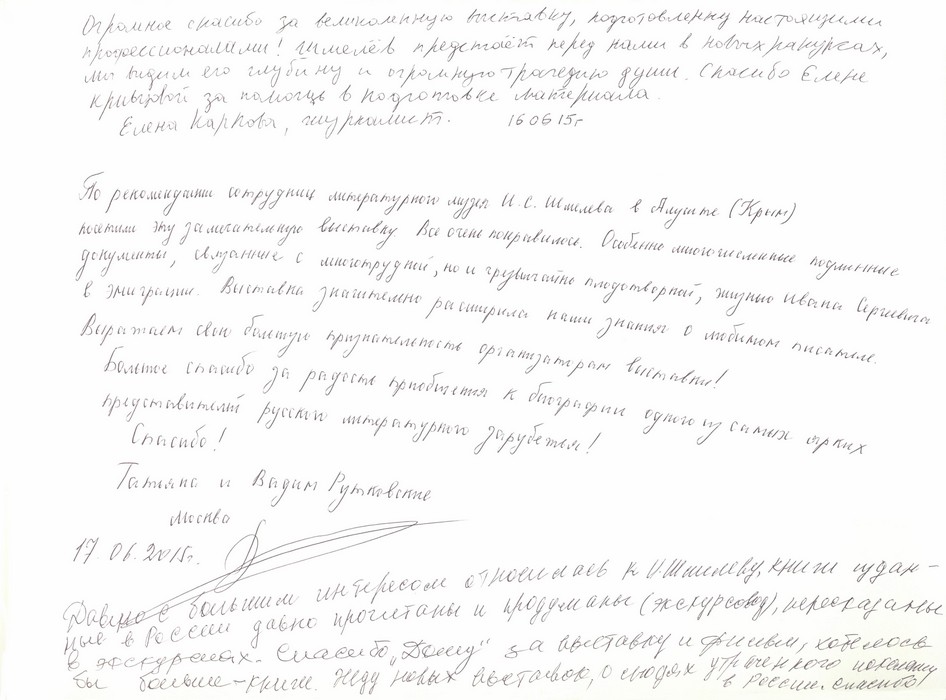 Огромное спасибо за великолепную выставку, подготовленну настоящими
профессионалами! Шмелёв предстаёт перед нами в новых ракурсах,
мы видим его глубину и огромную трагедию души. Спасибо Елене
Кривцовой за помощь в подготовке материала.
Елена Карпова, журналист. 16 06 15г
По рекомендации сотрудниц литературного музея И.С. Шмелева в Алуште (Крым)
посетили эту замечательную выставку. Все очень понравилось. Особенно многочисленные подлинные
документы, связанные с многотрудной, но и чрезвычайно плодотворной, жизнью Ивана Сергеевича
в эмиграции. Выставка значительно расширила наши знания о любимом писателе.
Выражаем свою большую признательность организаторам выставки!
Большое спасибо за радость приобщения к биографии одного из самых ярких
представителей русского литературного зарубежья!
Спасибо!
Татьяна и Вадим Рутковские
Москва
17.06.2015г.
Давно с большим интересом относилась к И Шмелеву, книги издан-
ные в России давно прочитаны и продуманы (экскурсовод), пересказаны
в экскурсиях. Спасибо „Дому" за выставку и фильм, хотелось
бы больше - книги. Жду новых выставок, о людях утраченного поколения
в России. Спасибо!